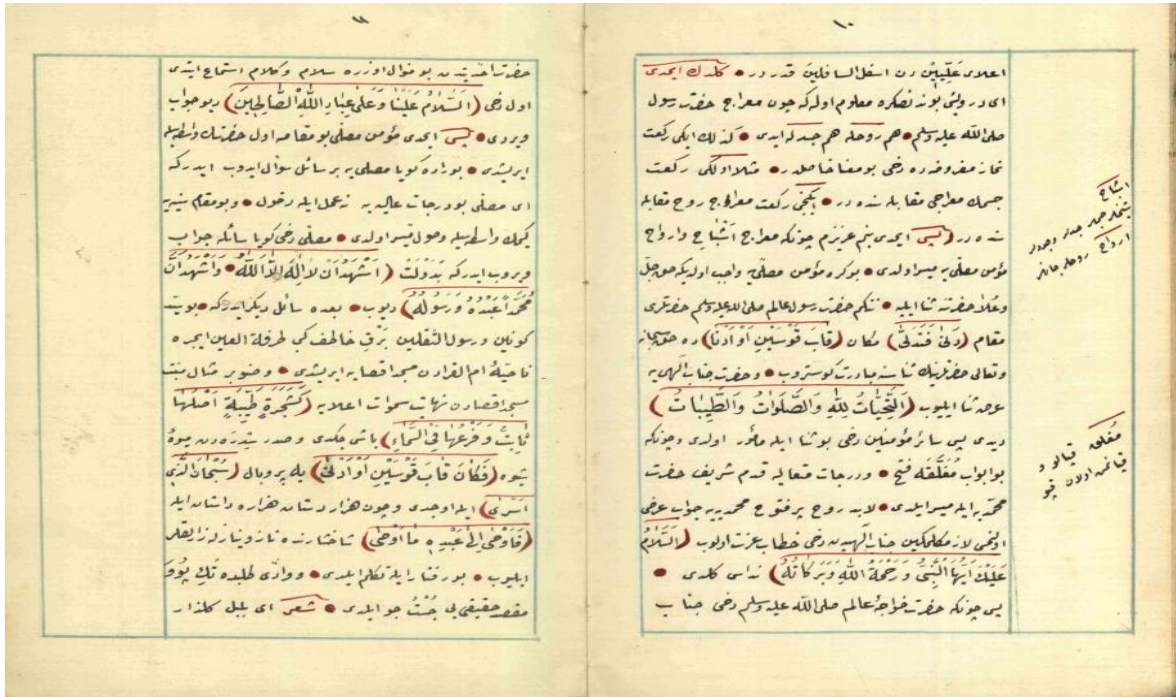 ١٠
اعلای عَلِّیّین دن اسفل السافلین قدر در • کلدك ایمدی
ای درویش بوندنصکره معلوم اوله که چون معراج حضرت رسول
صلی الله علیه وسلم • هم روحله هم جسدله ایدی • کذلك ایکی رکعت
نماز مفروضه ده دخی بو معنا حاصلدر • مثلا اولکی رکعت
جسمك معراجی مقابله سنده در • ایکنجی رکعت معراج روح مقابله
سنده در (پس ایمدی بنم عزیزم چونکه معراج اشباح وارواح
مؤمن مصلی یه میسر اولدی • بو کره مؤمن مصلی یه واجب اولدیکه حق جل
وعلا حضرتنه ثنا ایلیه • نتکم حضرت رسول عالم صلی الله علیه وسلم حضرتلری
مقام (دَنیٰ فَتَدَلّیٰ) مکان (قَابَ قَوْسَیْنِ أَوْ أَدْنَا) ده حق سبحانه
وتعالی حضرتلرینك ثناسنه مبادرت کوستروب • وحضرت جناب الهی یه
عرض ثنا ایلیوب (اَلتَّحِیَّاتُ لِلّٰهِ وَالصَّلَوَاتُ وَالطَّیِّبَاتُ)
دیدی پس سائر مؤمنین دخی بو ثنا ایله مأمور اولدی وچونکه
بو ابواب مُغَلَّقَه فتح • ودرجات متعالیه قدم شریف حضرت
محمدیه ایله میسر ایلدی • لابد روح پرفتوح محمدی یه جواب عرضی
اولنمق لازمکلمکین جناب الهیدن دخی خطاب عزت اولوب (اَلسَّلَامُ
عَلَیْكَ أَیُّهَا النَّبِیُّ وَرَحْمَةُ اللّٰهِ وَبَرَکَاتُهُ) نداسی کلدی •
پس چونکه حضرت خواجهٔ عالم صلی الله علیه وسلم دخی جناب
اشباح
ارواح روحلر جانلر
مُغلقه قپالو و
قپانمش اولان قپو
١١
حضرت احدیتدن بو منوال اوزره سلام وکلام استماع ایتدی
اول دخی (اَلسَّلَامُ عَلَیْنَا وَعَلیٰ عِبَادِ اللّٰهِ الصَّالِحِینَ) دیو جواب
ویردی • پس ایمدی مؤمن مصلی بو مقامه اول حضرتك واسطه سیله
ایریشدی • بوراده کویا مصلی یه بر سائل سؤال ایدوب ایدرکه
ای مصلی بو درجات عالیه یه نه عمل ایله دخول • وبو مقام سنیه یه
کیمك واسطه سیله وصول میسر اولدی • مصلی دخی کویا سائله جواب
ویروب ایدرکه بدولت (أَشْهَدُ أَنْ لَا إِلٰهَ إِلَّا اللّٰهُ • وَأَشْهَدُ أَنَّ
مُحَمَّدًا عَبْدُهُ وَرَسُولُهُ) دیوب • بعده سائل دیکر ایدرکه • بو سید
کونین ورسول الثقلین برق خاطف کبی طرفة العین ایچره
ناحیهٔ ام القرادن مسجد اقصایه ایریشدی • وصنوبر مثال منبت
مسجد اقصادن نهایت سموات اعلایه (کَشَجَرَةٍ طَیِّبَةٍ أَصْلُهَا
ثَابِتٌ وَفَرْعُهَا فِی السَّمَاءِ) باش چکدی وصدر سدره دن میوهٔ
(فَکَانَ قَابَ قَوْسَیْنِ أَوْ أَدْنیٰ) یله پر وبال (سُبْحَانَ الَّذِی
أَسْرَیٰ) ایله اوچدی وچون هزار دستان هزاره داستان ایله
(فَأَوْحَیٰ إِلیٰ عَبْدِهِ مَا أَوْحَیٰ) شاخسارنده ناز ونیاز
ایلیوب • بو رفتار ایله تکلم ایلدی • ووادئ طلبده تك وپو
مقصد حقیقی یی جُسْت جو ایلدی • شعر ای بلبل کلزار